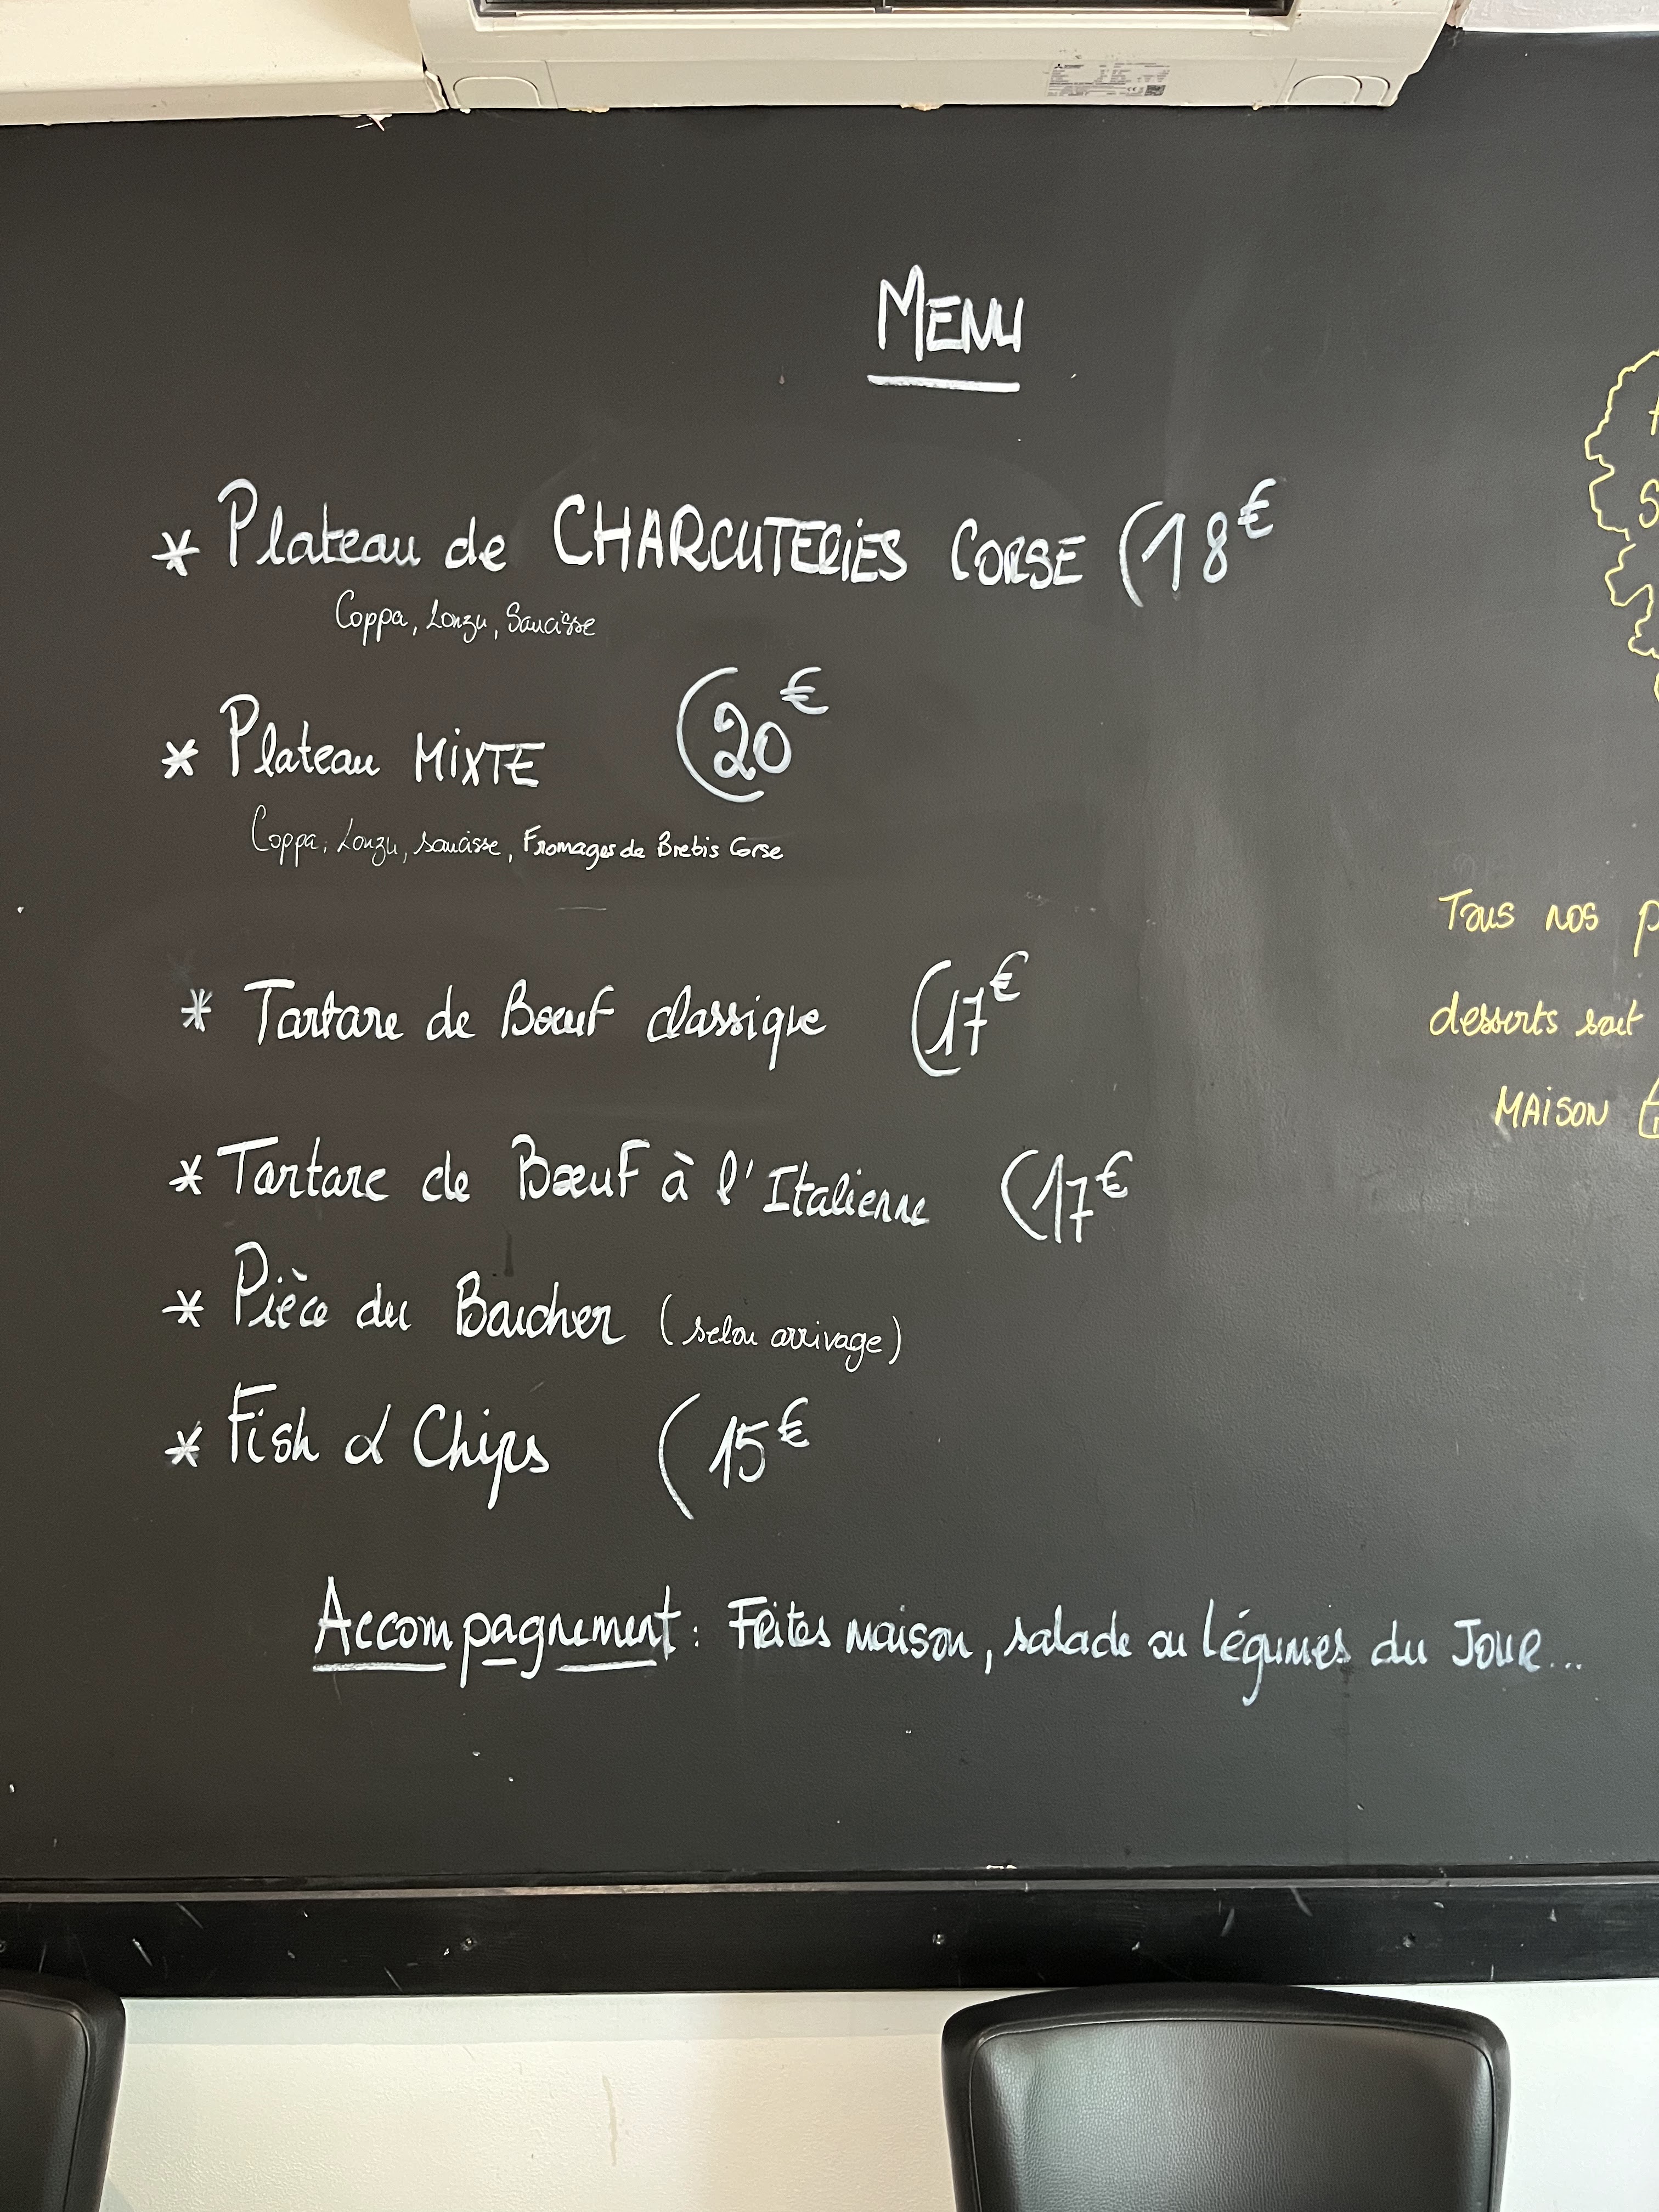 MENU
* Plateau de CHARCUTERIES CORSE (18€
Coppa, Lonzu, Saucisse
* Plateau MiXTE (20€
Coppa, Lonzu, saucisse, Fromages de Brebis Corse
* Tartare de Bœuf classique (17€
* Tartare de Bœuf à l'Italienne (17€
* Pièce du Boucher (selon arrivage)
* Fish & Chips (15€
Accompagnement : Frites maison, salade ou légumes du JOUR...
Tous nos p
desserts sont
MAiSON